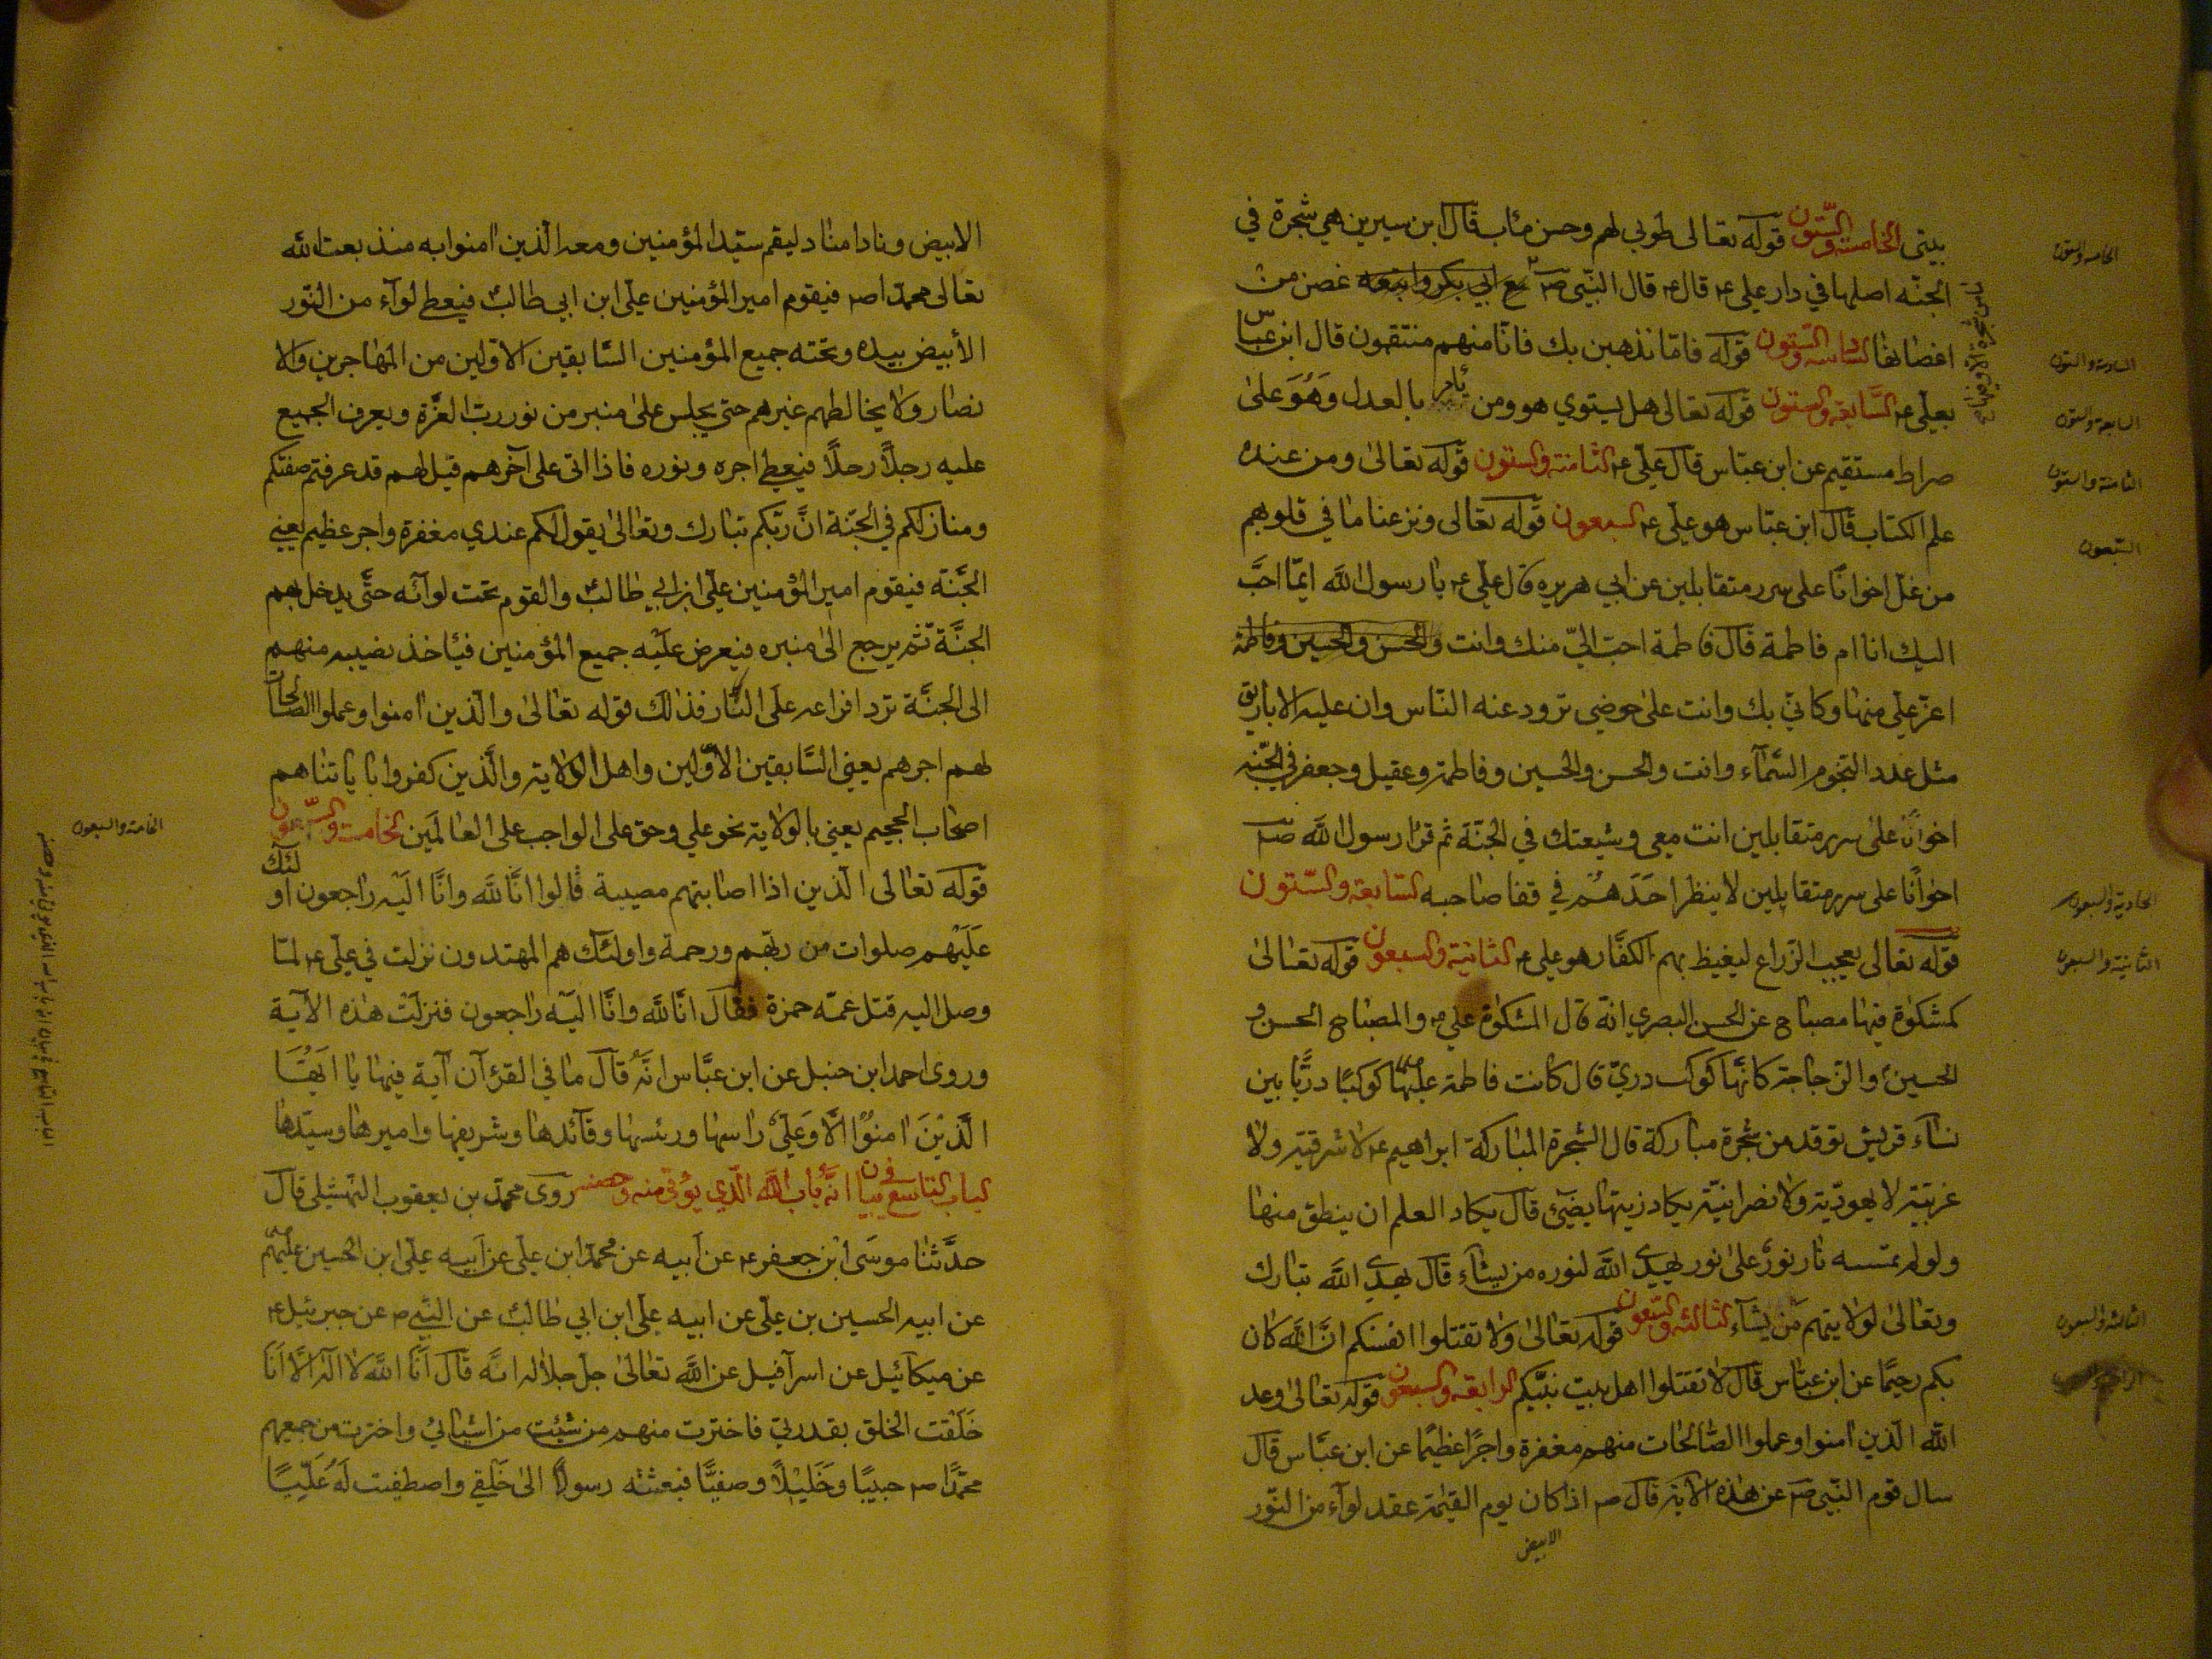 بيتى الخامسة والستون قوله تعالى طوبى لهم وحسن مئاب قال ابن سيرين هي شجرة في
الجنة اصلها في دار علي ع قال ع قال النبي ص غصن من
اغصانها السادسة والستون قوله فامّا نذهبن بك فانّا منهم منتقمون قال ابن عباس
بعلي ع السابعة والستون قوله تعالى هل يستوي هو ومن يأمر بالعدل وَهُوَ علىٰ
صراط مستقيم عن ابن عباس قال علي ع الثامنة والستون قوله تعالىٰ ومن عنده
علم الكتاب قال ابن عباس هو علي ع السبعون قوله تعالى ونزعنا ما في قلوبهم
من غل اخوانًا على سرر متقابلين عن ابي هريره قال علي ع يا رسول الله ايمّا احبّ
اليك انا ام فاطمة قال فاطمة احب اليّ منك وانت
اعزّ عليّ منها وكانّي بك وانت علىٰ حوضي تزود عنه الناس وان عليه الاباريق
مثل عدد النجوم السّمآء وانت والحسن والحسين وفاطمة وعقيل وجعفر في الجنّه
اخوانًا علىٰ سرر متقابلين انت معي وشيعتك في الجنّة ثم قرا رسول الله ص
اخوانًا على سرر متقابلين لا ينظر احَدَهُم في قفا صاحبه السابعة والستون
قوله تعالى يعجب الزراع ليغيظ بهم الكفّار هو علي ع الثانية والسبعون قوله تعالىٰ
كمشكوٰة فيها مصباح عن الحسن البصري انّه قال المشكوٰة علي ع والمصباح الحسن و
الحسين والزجاجة كانّها كوكب دريّ قال كانت فاطمة عليها كوكبًا درّيًا بين
نساء قريش توقد من شجرة مباركة قال الشجرة المباركة ابراهيم ع لا شرقية ولا
غربية لا يهوديّة ولا نصرانيّة يكاد زيتها يضيئ قال يكاد العلم ان ينطق منها
ولو لم تمسسه نار نورٌ علىٰ نور يهدي الله لنوره من يشآء قال يهدي الله تبارك
وتعالىٰ لولايتهم من يشآء الثالثة والسبعون قوله تعالىٰ ولا تقتلوا انفسكم انّ الله كان
بكم رحيمًا عن ابن عباس قال لا تقتلوا اهل بيت نبيّكم الرابعة والسبعون قوله تعالىٰ وعد
الله الذين امنوا وعملوا الصالحات منهم مغفرة واجرًا عظيمًا عن ابن عبّاس قال
سال قوم النبي ص عن هذه الاية قال ص اذا كان يوم القيٰمة عقد لوآء من النّور
الابيض
الخامسة والستون
السادسة والستون
السابعة والستون
الثامنة والستون
السبعون
الحادية والسبعون
الثانية والسبعون
الثالثة والسبعون
الابيض ونادا مناد ليقم سيّد المؤمنين ومعه الّذين امنوا به منذ بعث الله
تعالى محمدًا ص فيقوم امير المؤمنين علي ابن ابي طالب فيعطى لوآء من النّور
الأبيض بيده وتحته جميع المؤمنين السّابقين الاوّلين من المهاجرين والا
نصار ولا يخالطهم غيرهم حتى يجلس علىٰ منبر من نور ربّ العزّة ويعرف الجميع
عليه رجلًا رجلًا فيعطى اجره ونوره فاذا اتى على آخرهم قيل لهم قد عرفتم صفتكم
ومنازلكم في الجنّة انَّ ربّكم تبارك وتعالىٰ يقول لكم عندي مغفرة واجر عظيم يعني
الجَنّة فيقوم امير المؤمنين علي ابن ابي طالب والقوم تحت لوآئه حتّى يدخل بهم
الجنَّة ثم يرجع الىٰ منبره فيعرض علَيْه جميع المؤمنين فياخذ نصيبه منهم
الى الجنَّة ترد افراعه علَى النّار فذٰلك قوله تعالىٰ والّذين امنوا وعملوا الصالحات
لهم اجرهم يعني السّابقين الأوّلين واهل الولاية والَّذين كفروا باياتنا هم
اصحاب الجحيم يعني بالولاية نحو علي وحق علي الواجب على العالمين الخامسة والسبعون
قوله تعالى الّذين اذا اصابتهم مصيبة قالوا انّا لله وانّا اليه راجعون اولئك
عَلَيْهم صلوات من ربّهم ورحمة واولئك هم المهتدون نزلت في علي ع لمّا
وصل اليه قتل عمّه حمزة فقال انّا لله وانّا اليه راجعون فنزلَتْ هٰذه الآية
وروى احمد ابن حنبل عن ابن عبَّاس انّهُ قال ما في القرءآن آية فيها يا ايّهَا
الَّذينَ امنوا الّا وَعَليّ راسها ورئسها وقآئدها وشريفها واميرها وسيّدها
الباب التاسع في بيان انّه باب الله الّذي يؤتى منه وحصنه روى محمد بن يعقوب النهشلي قال
حدّثنا موسَى ابْن جعفر ع عن ابيه عن محمّد ابن علي عن ابيه علي ابن الحسين عليهم
عن ابيه الحسين بن علي عن ابيه علي ابن ابي طالب عن النّبي ص عن جبرئيل ع
عن ميكائيل عن اسرآفيل عن الله تعالىٰ جلّ جلاله انّه قال انَا الله لا اله الّا انَا
خَلَقت الخلق بقدرتي فاخترت منهم من شئت من انبيائي واخترت من جميعهم
محمّدًا ص حبيبًا وخَليْلًا وصفيًّا فبعثته رسولًا الىٰ خَلقي واصطفيت لَهُ عَليًّا
الخامسة والسبعون
الباب التاسع في بيان انه باب الله الذي يؤتى منه وحصنه